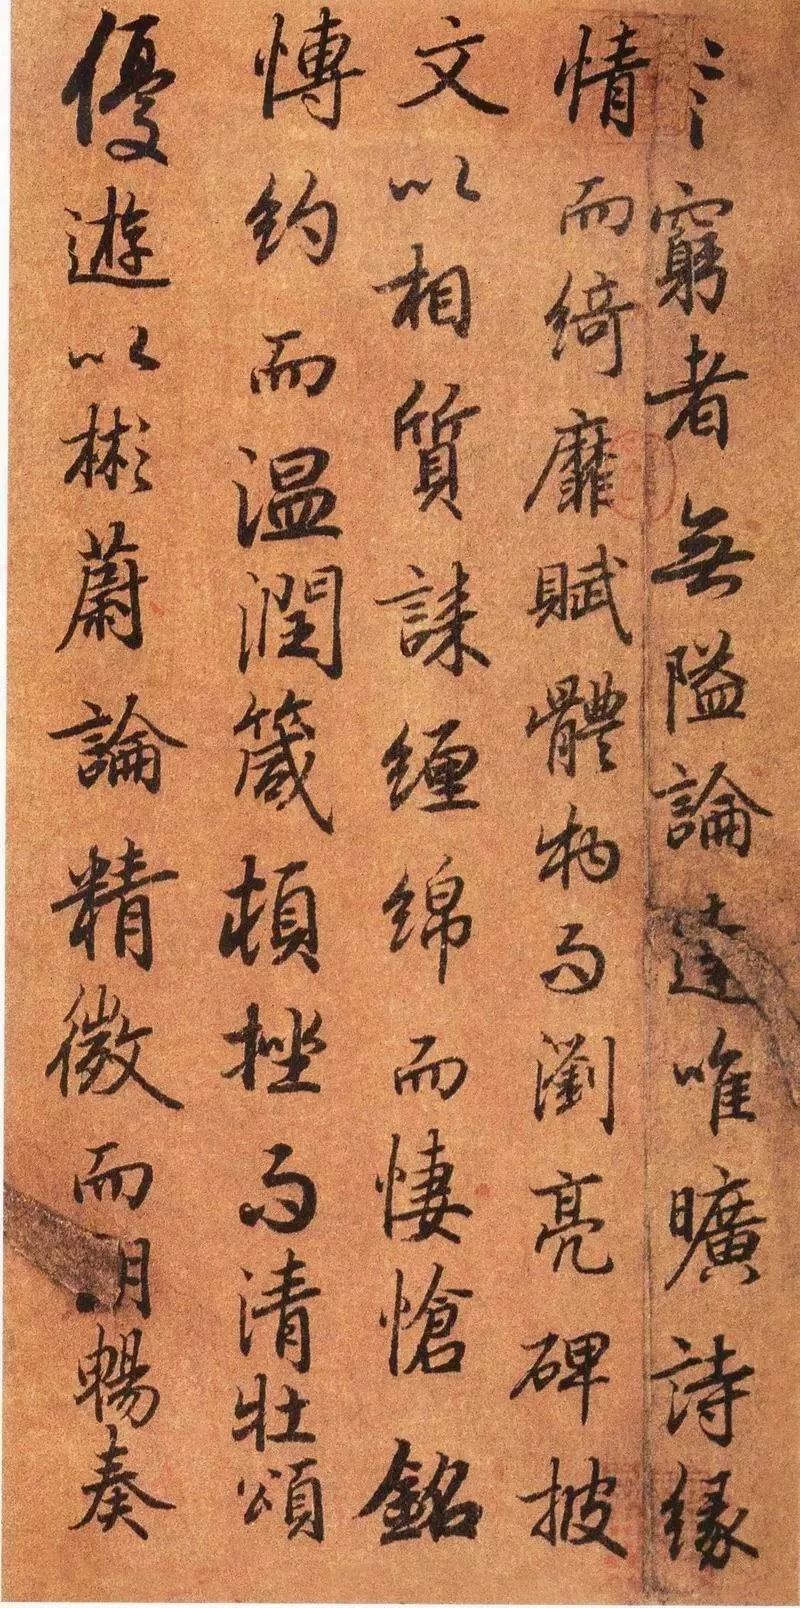 窮者無隘論達唯曠詩緣
情而綺靡賦體物而瀏亮碑披
文以相質誄纏綿而悽愴銘
愽約而温潤箴頓挫而清壯頌
優遊以彬蔚論精微而朗暢奏